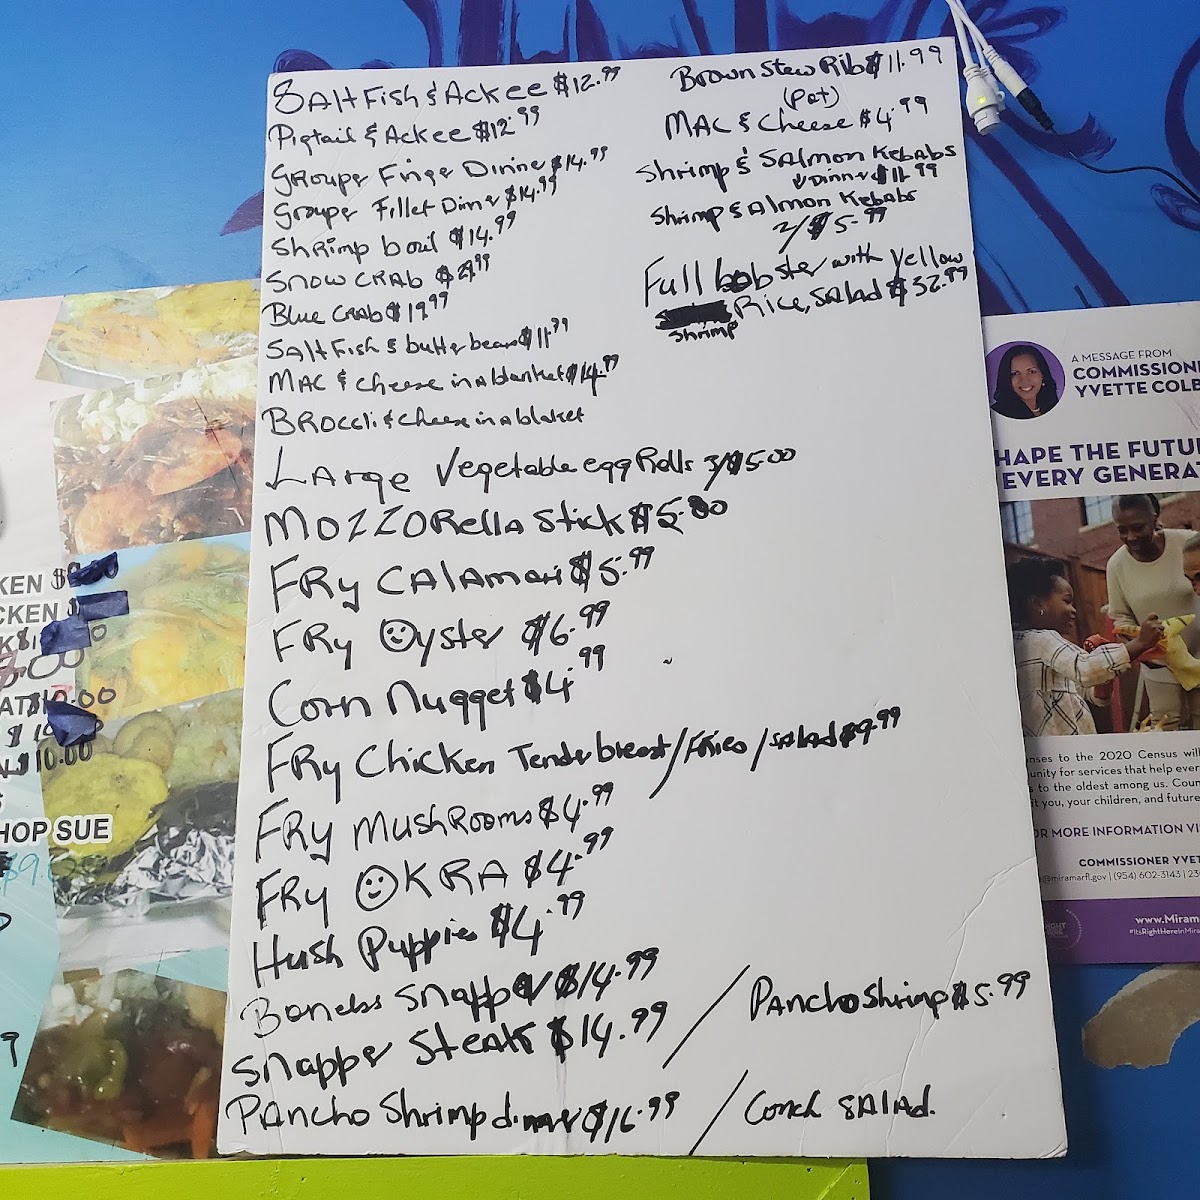 SAlt Fish & Ackee $12.99
Pigtail & Ackee $12.99
Grouper Finger Dinner $14.99
Grouper Fillet Dinner $14.99
Shrimp boil $14.99
Snow CRAB
Blue CRAB $19.99
SAlt Fish & butter beans $11.99
MAC & cheese in a blanket $14.99
BROCCli & cheese in a blaket
LARge Vegetable egg Rolls 3/$5.00
MOZZORella Stick $5.00
FRy CAlAmari $5.99
FRy Oyster $6.99
Corn Nugget $4.99
FRy Chicken Tender breast/FRies/SAlad $9.99
FRy MushRooms $4.99
FRy OKRA $4.99
Hush Puppies $4.99
Boneless Snapper $14.99
Snapper Steak $14.99 /
PAncho Shrimp $5.99
PAncho Shrimp dinner $16.99 /
Conch SALAd.
Brown Stew Rib $11.99
MAC & Cheese $4.99
Shrimp & SAlmon Kebabs
Dinner $11.99
Shrimp SAlmon Kebabs
2/$5.99
Full lobster with yellow
Rice, SAlad $32.99
Shrimp
KEN $
CKEN $
$10.00
$10.00
HOP SUE
A MESSAGE FROM
COMMISSIONE
YVETTE COLB
HAPE THE FUTU
EVERY GENERA
nses to the 2020 Census will
unity for services that help ever
s to the oldest among us. Coun
t you, your children, and future
OR MORE INFORMATION VI
COMMISSIONER YVET
@miramarfl.gov | (954) 602-3143 | 23
www.Miram
#ItsRightHereInMira